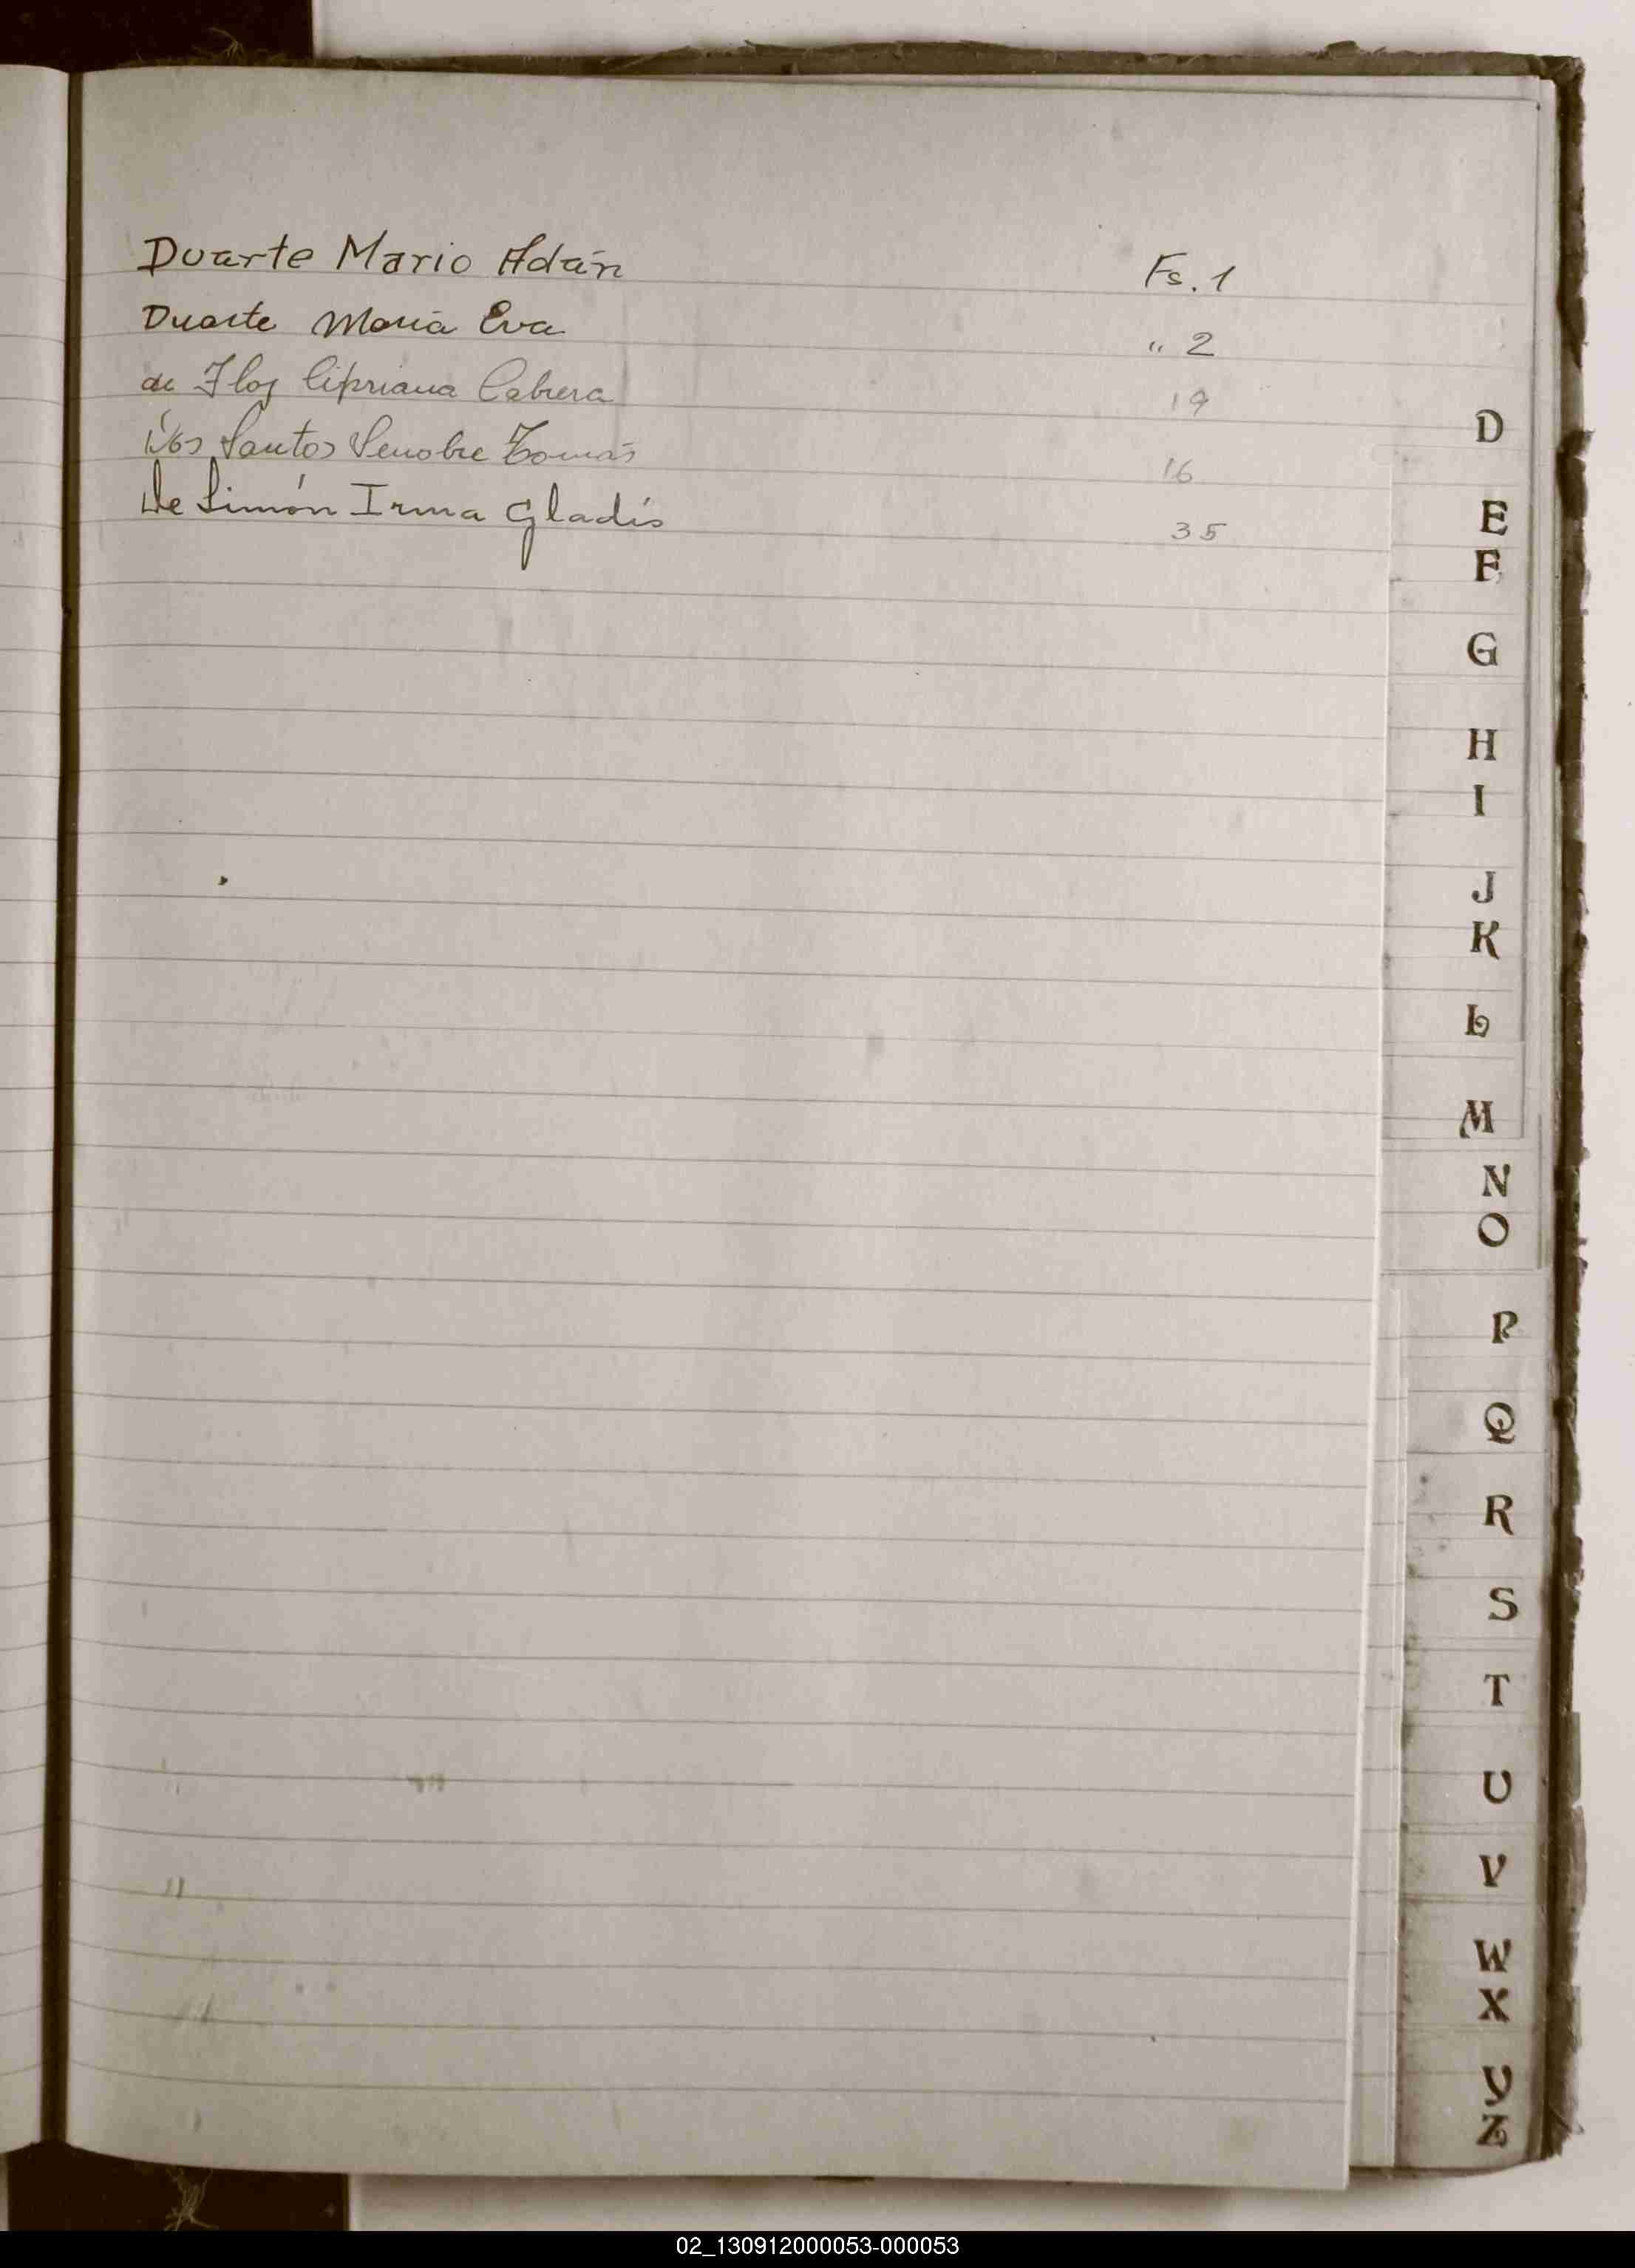 Duarte Mario Adán Fs. 1
Duarte María Eva " 2
de Flor Cipriana Cabrera 19
Dos Santos Senobre Tomás 16
De Simón Irma Gladis 35
D
E
F
G
H
I
J
K
L
M
N
O
P
Q
R
S
T
U
V
W
X
Y
Z
02_130912000053-000053